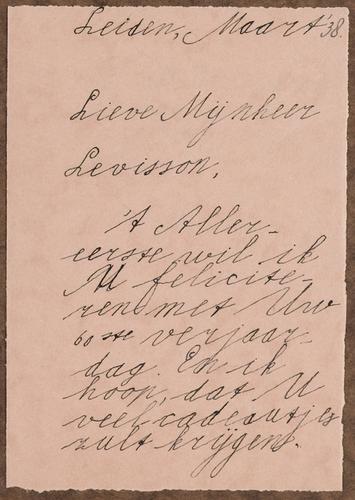 Leiden, Maart '38.
Lieve Mijnheer
Levisson,
't Aller-
eerste wil ik
U felicite-
ren met Uw
60ste verjaar-
dag. En ik
hoop, dat U
veel cadeautjes
zult krijgen.